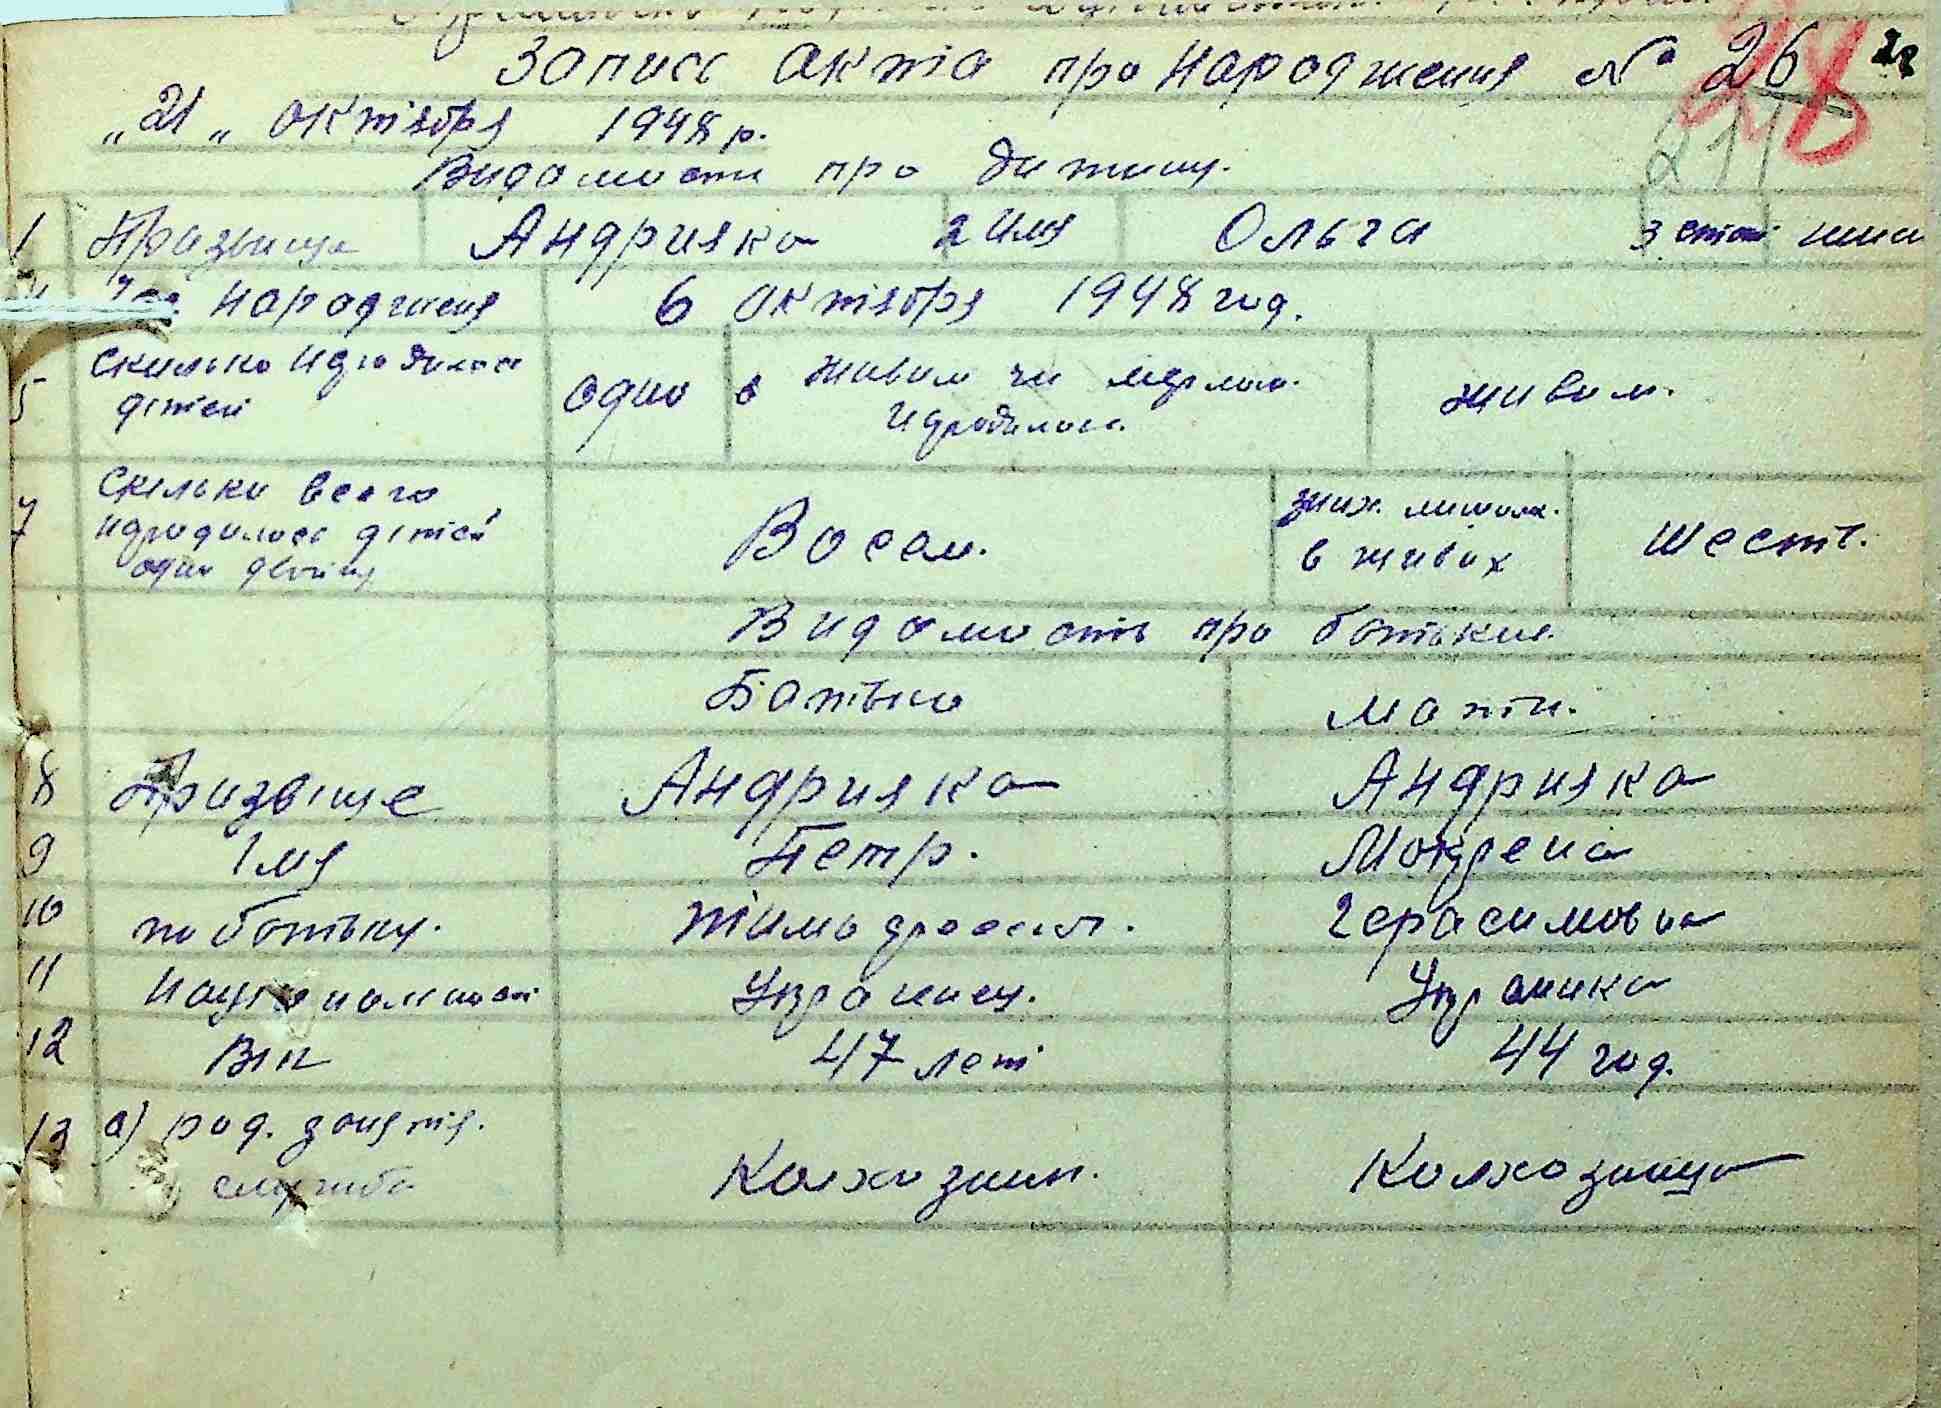 Запись акта про народження № 26
„21„ октября 1948 р.
Видомости про дитину.
1 Призвище Андрияка 2 имя Ольга 3 стат
народженя 6 октября 1948 год.
5 скилько идродилось дітей одно 6 живим чи мертвим идродилось живим.
7 Скильки всего идродилось дітей Восем. зних лишилх. в живих шесть.
Видомость про батькив
Батько мати.
8 Призвіще Андрияка Андрияка
9 Імя Петр. Мокрена
10 по батьку. Герасимовна
11 Национальност Украинец. Украинка
12 Вік 47 лет 44 год.
13 а) род. занятя. служба Колхозник. Колхозница